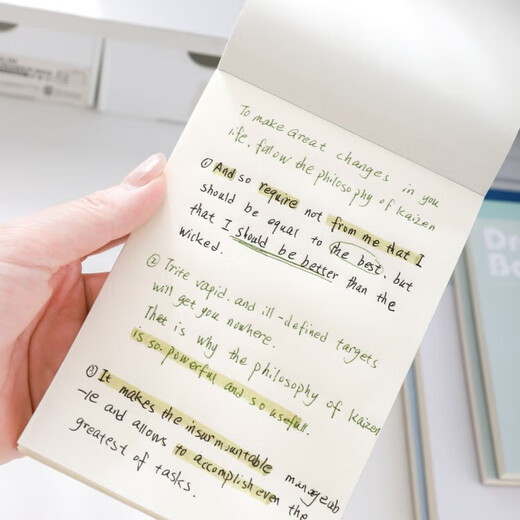 To make Great changes in you
life, follow the philosophy of Kaizen
① And so require not from me that I
should be equal to the best, but
that I should be better than the
wicked.
② Trite vapid, and ill-defined targets
will get you nowhere.
That is why the philosophy of Kaizen
is so powerful and so usefull.
③ It makes the insurmountable manageab
-le and allows to accomplish even the
greatest of tasks.